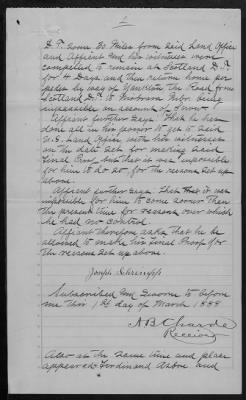 2
D.T. some 30 Miles from said Land Office
and Affiant and his witnesses were
compelled to remain at Scotland D.T
for 4 Days and then return home per
by way of Yankton the Road from
Scotland D.T. to Nebr. being
impassable on account of Snow.
Affiant further Says That he has
done all in his power to get to Said
U.S. Land Office with his witnesses
on the date set for making said
Final Proof but that it was impossible
for him to do so, for the reasons set up
above.
Affiant further Says That it was
impossible for him to come sooner than
the present time for reasons over which
he had no control.
Affiant therefore asks that he be
allowed to make his Final Proof for
the reasons set up above.
Joseph
Subscribed and Sworn to before
me this 1st day of March 1889
A B
Receiver
Also at the same time and place
appeared Ferdinand and